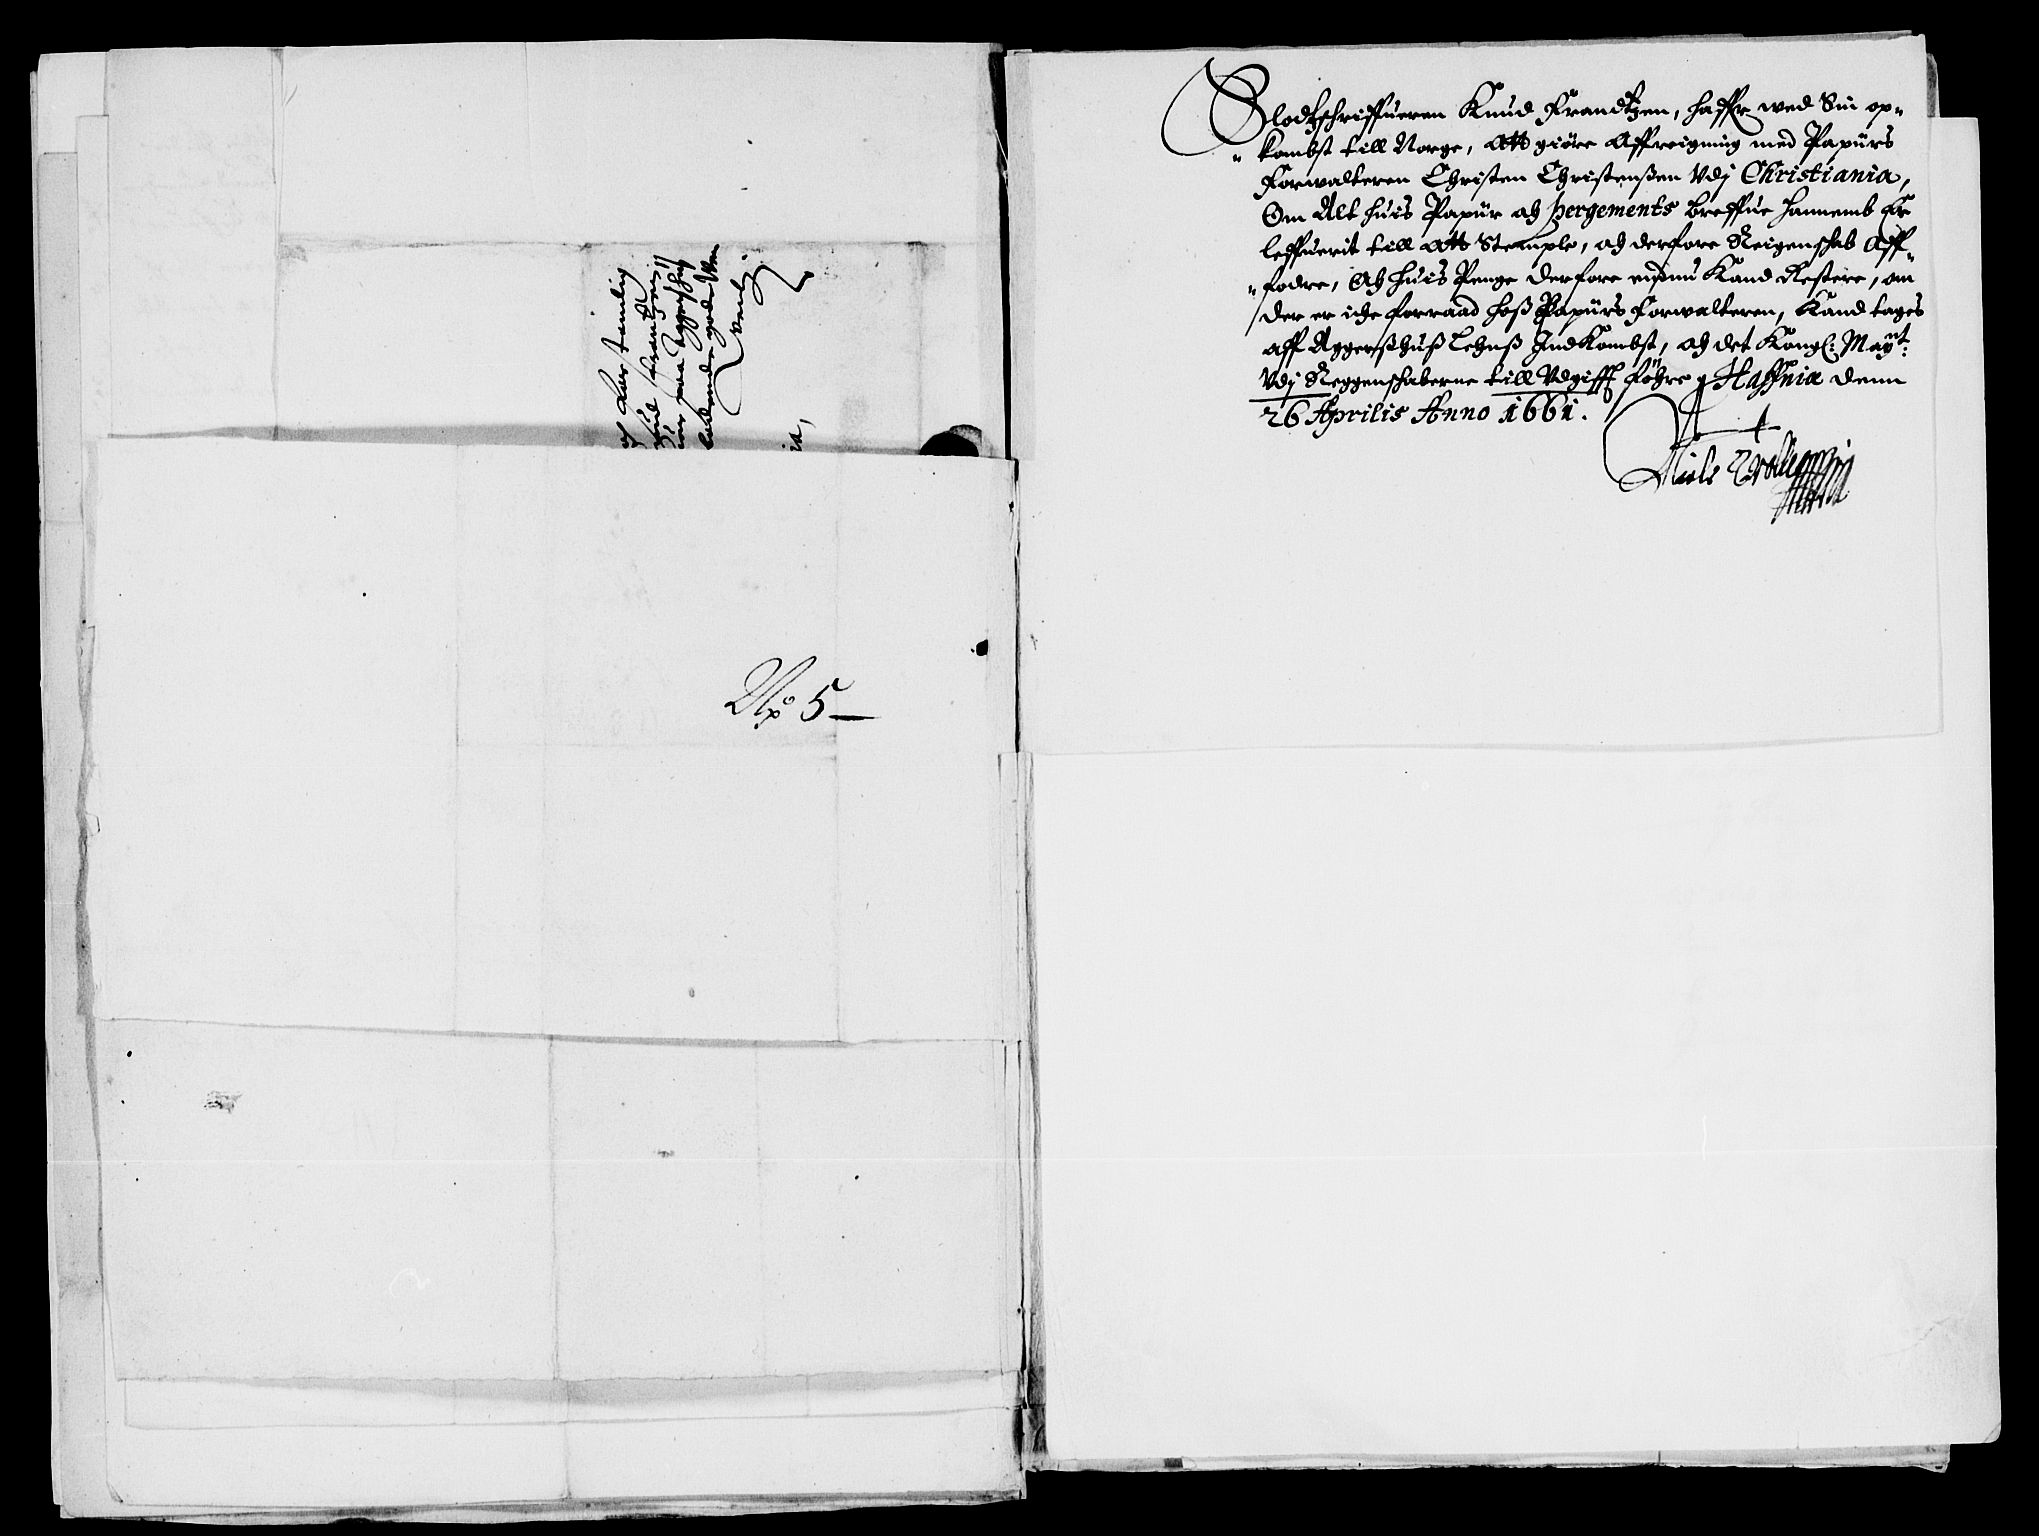 Slodtzschriffueren Knud Frandtzen, haffr wed Sin op„
„kombst till Norge, Att giöre Affreigning med Papürs
Forwalteren Christen Christenßen Vdj Christiania,
Om Alt huis Papür och pergements breffue hannemb Er
leffuerit till Att Stemple, och derfore Reigenschab Aff„
„fodre, Och huis Penge derfore endnu Kand Restere, om
der er iche forraad hoß Papürs Forwalteren, Kand tages
aff Aggershuß Lehnß IndKombst, och det Kongl: Maytt:
Vdj Reggenschaberne till Vdgifft föhre Haffnia denn
26 Aprilis Anno 1661.
Niels Trolle
No 5